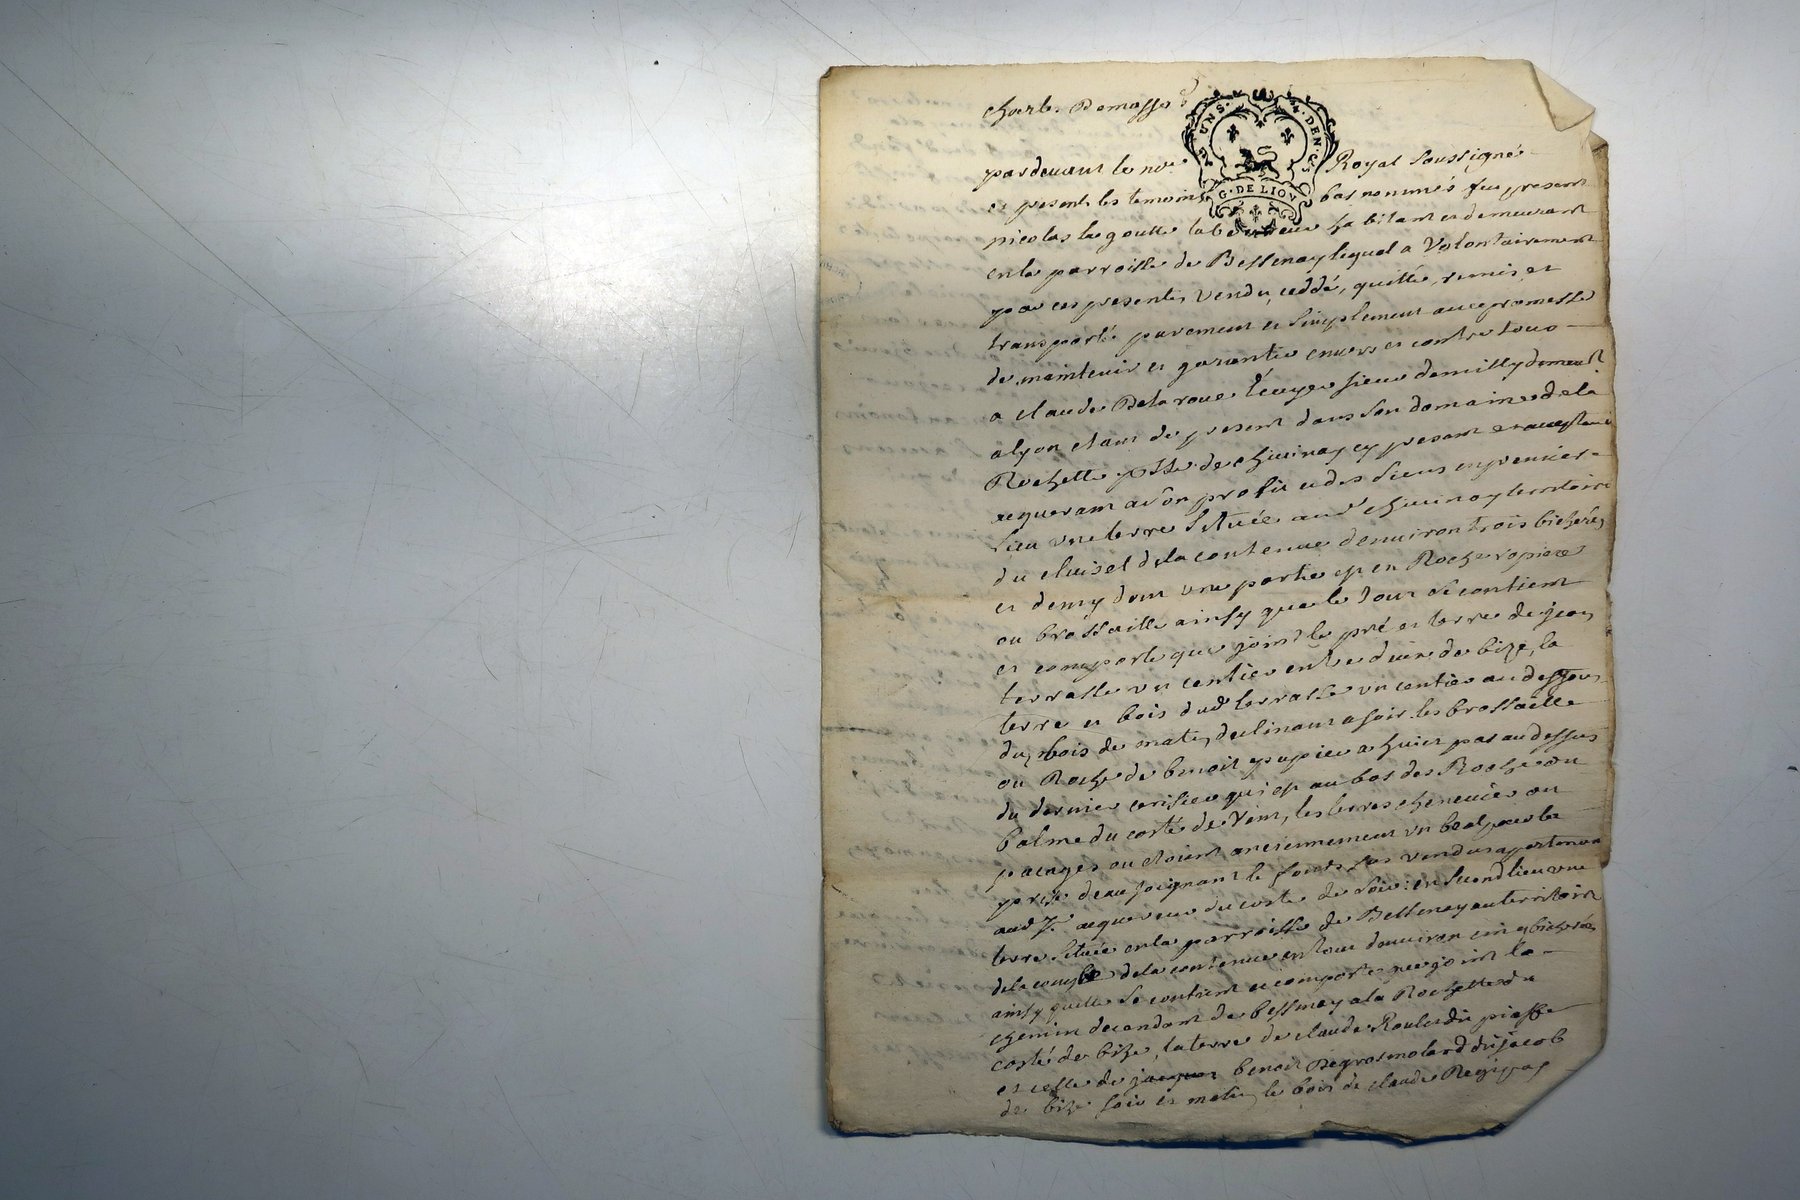 UN S. DEN. G. DE LION
pardevant le no.re Royal soussigné
et presents les temoins bas nommés fut present
nicolas lagoutte laboureur habitant et demeurant
en la parroisse de Bessenay lequel a volontairement
par ces presentes vendu, ceddé, quitté, remis et
transporté purement et simplement avec promesse
de maintenir et garantir envers et contre tous
a claude Delaroue Ecuyer sieur demilly demeurt
a lyon etant de present dans son domaine de la
Rochette psse de chivinay cy present et acceptant
acquerant a son profit et des siens en premier
lieu une terre située aud chivinay territoire
du cluisel de la contenue denviron trois bicherés
et demy dont une partie est en Roche rapiere
ou brossaille ainsy que le tout se contient
et comporte que joint le pré et terre de jean
terrasse un sentier entre deux de bize, la
terre et bois dud terrasse un sentier au dessous
du bois de matin, declinant a soir les brossaille
ou Roche de benoit papier a huict pas au dessus
du dernier cerisier qui est au bas des Roche ou
balme du costé de vent, les terres cheneviere ou
ou etoient anciennement un beal pour la
prise deau joignant le fonds sus vendu apartenant
aud Sr. acquereur du costé de soir: en second lieu une
terre située en la parroisse de Bessenay au territoire
de la combe de la contenue en tout denviron cinq bicherées
ainsy quelle se contient et comporte que joint le
chemin decendant de bessenay a la Rochette du
costé de bize, la terre de claude Roulet dit piasse
et celle de benoit Degrosmolard dit jacob
de bize soir et matin, le bois de claude